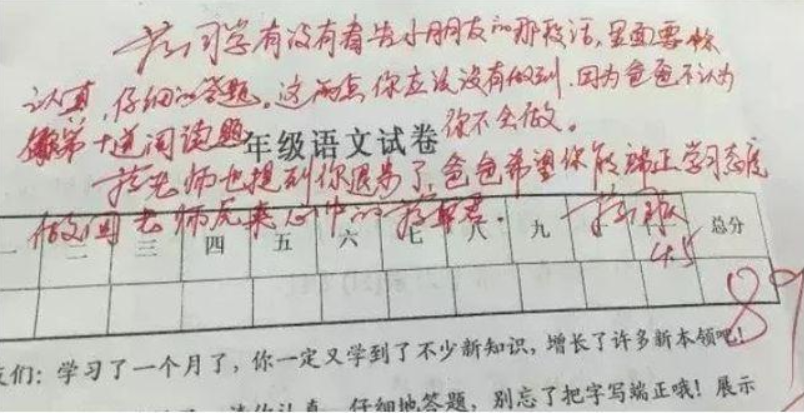 同学有没有看告小朋友的那段话,里面要你
认真,仔细的答题。这两点你应该没有做到,因为爸爸不认为
第十道阅读题 你不会做。
年级语文试卷
老师也提到你退步了,爸爸希望你能端正学习态度
做回老师原来心中的
一 二 三 四 五 六 七 八 九 十 总分
4.5
89
们:学习了一个月了,你一定又学到了不少新知识,增长了许多新本领吧!
请你认真、仔细地答题,别忘了把字写端正哦!展示